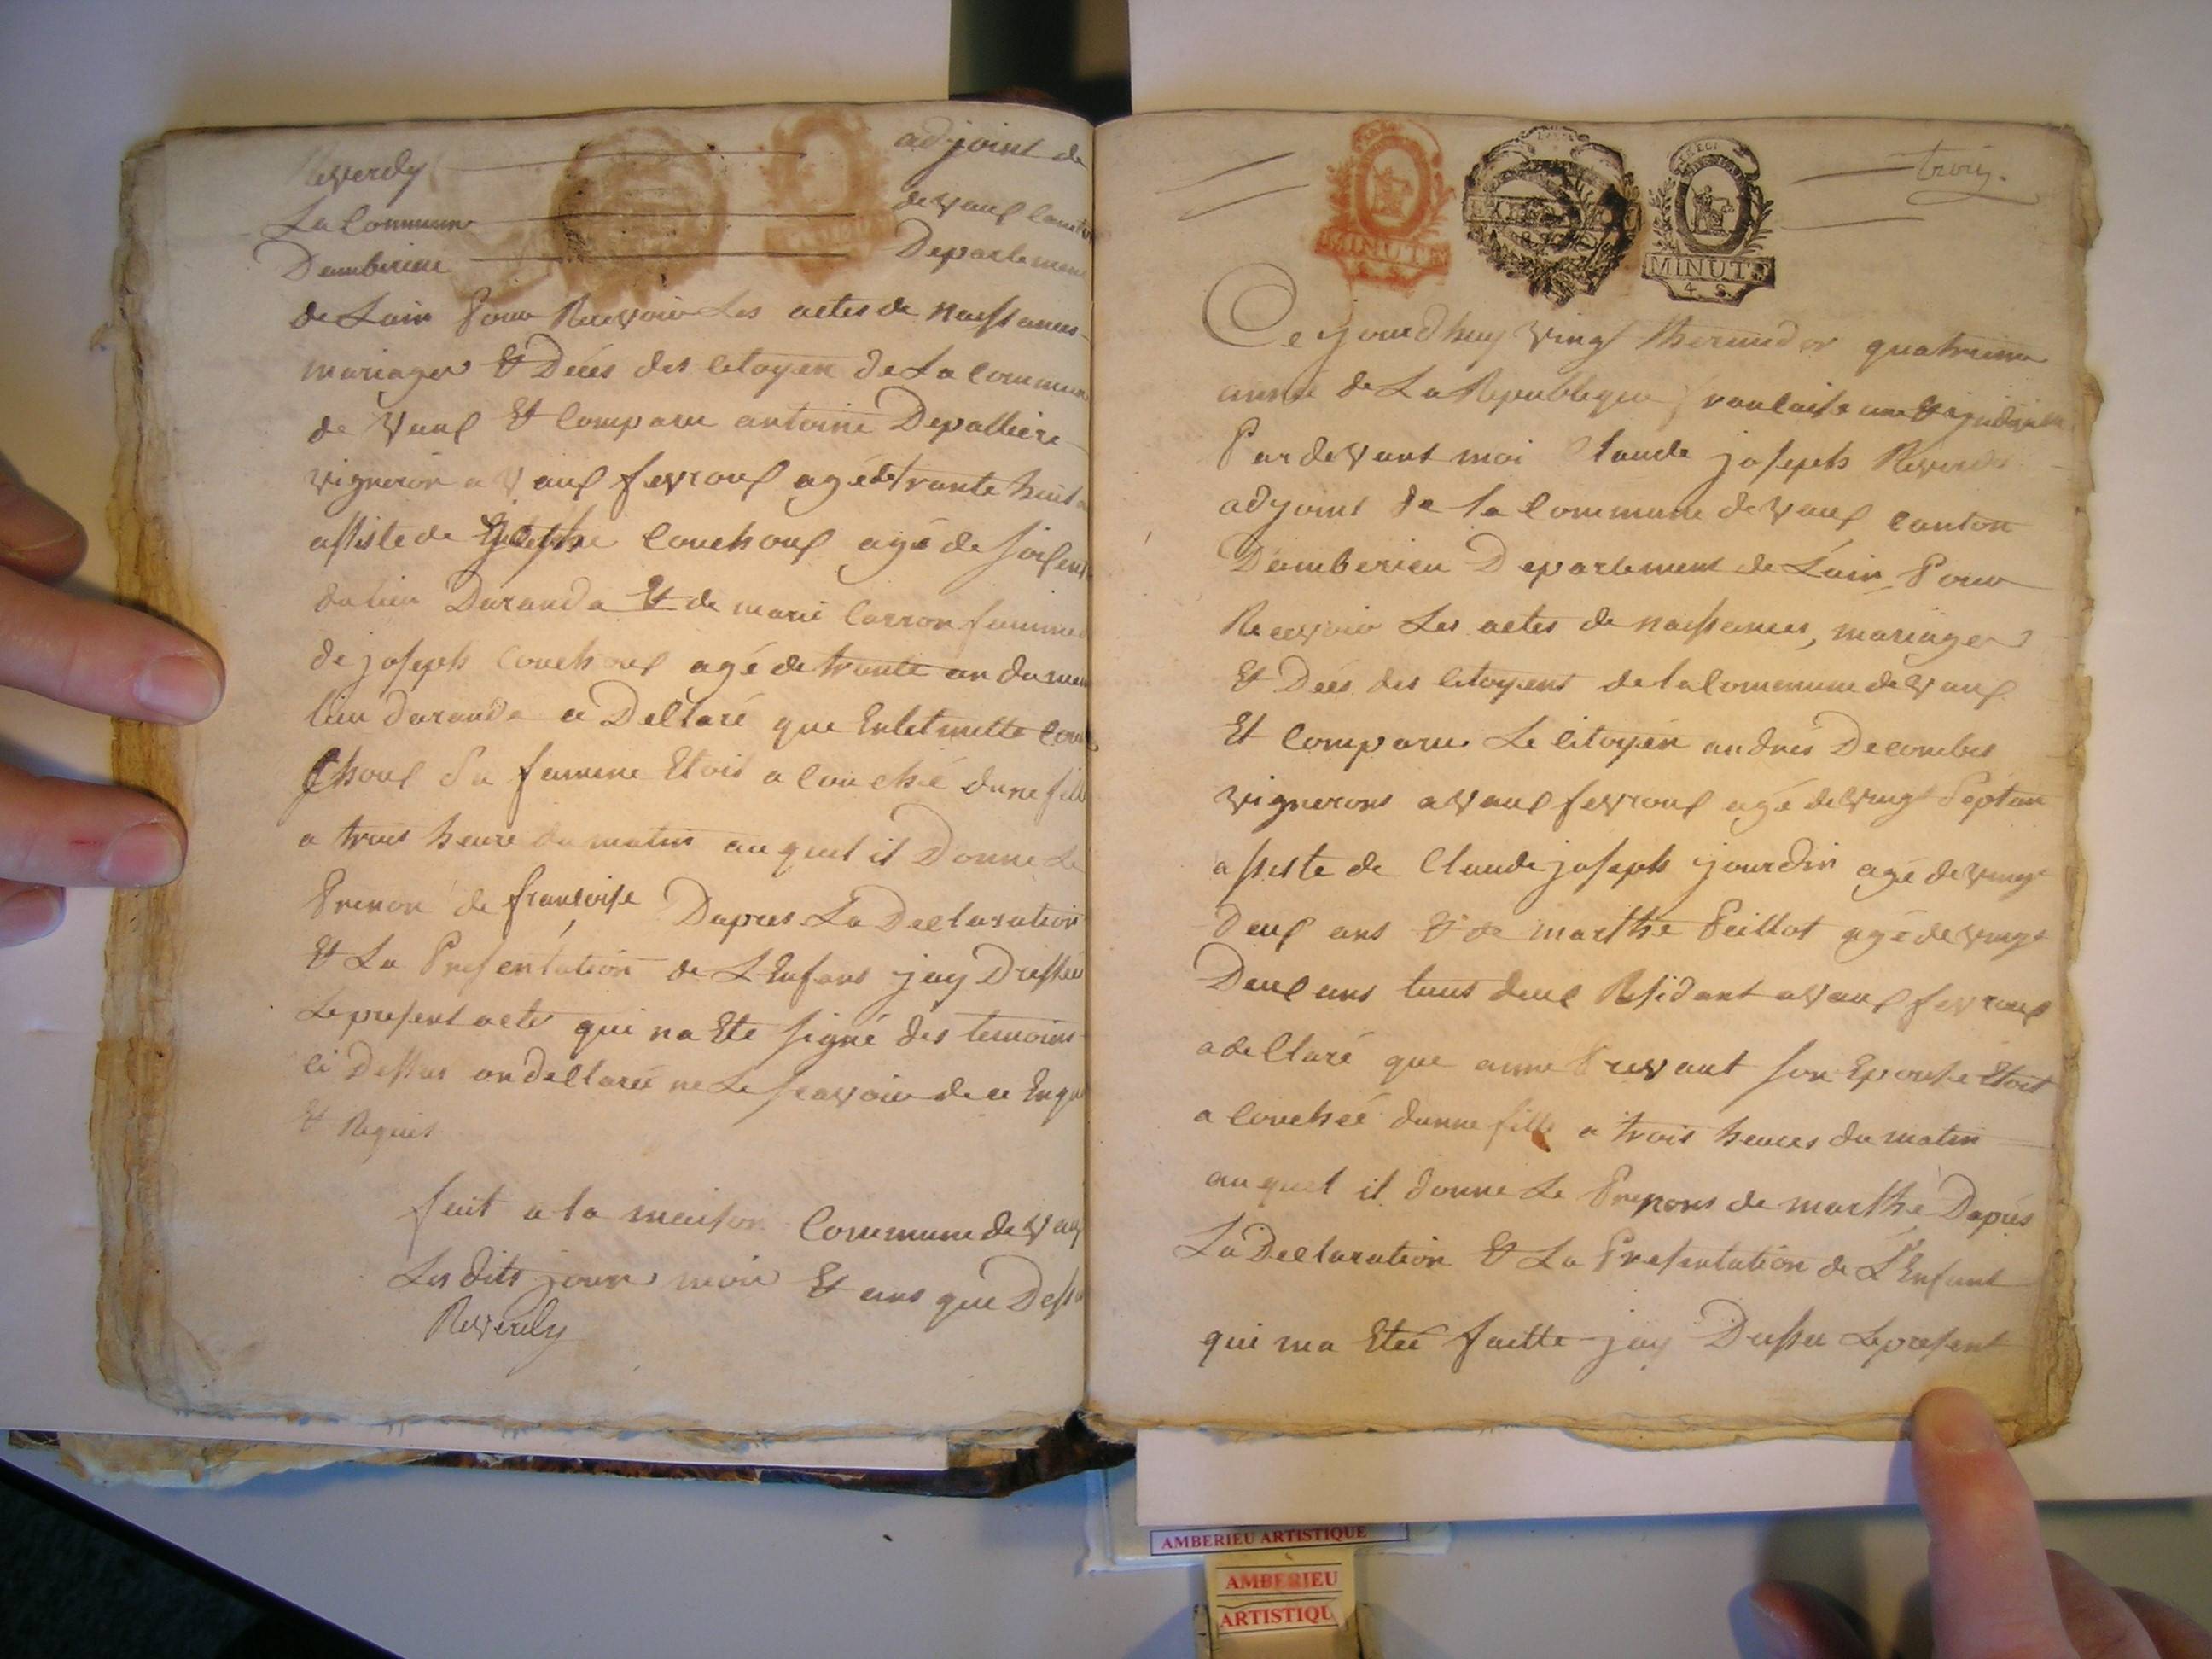 Reverdy adjoint de
La Commune de Vaux Canton
Damberieu Departement
de Lain Pour Recevoir Les actes de naissances
mariages & Décés des Citoyen de La Commune
de Vaux Et Comparu antoine Depalliere
vigneron a Vaux fevroux agé de trante huit
assiste de Couchoux agé de
du lieu Daranda Et de marie Carron femme
de joseph Couchoux agé de trante an du meme
lieu daranda a Dellaré que
choux Sa femme Etoit a Couchié dune fille
a trois heure du matin au quel il Donne Le
Prenon de francoise Dapres La Declaration
Et La Presentation de LEnfans jay Dressée
Le present acte qui na Ete signé des temoins
Ci Dessus on dellareé ne Le scavoir de ce Enquis
Et Requis
fait a la maison Commune de Vaux
Les dits jour mois Et ans que Dessus
Reverdy
trois.
MINUTE
MINUTE
4. S.
Ce jourdhuy Vingt thermidor quatrieme
année de La Republique francaise une & indivisible
Par deVant moi Claude joseph Reverdy
adjoint de la Commune de Vaux Canton
Damberieu Departement de Lain Pour
Recevoir Les actes de naissances, mariages
Et Deés des Citoyens de la Commune de Vaux
Et Comparu Le Citoyen andrés Decombes
vignerons a Vaux fevroux agé de Vingt Septan
assiste de Claude joseph jourdin agé de Vingt
Deux ans & de marthe Peillot agé de Vingt
Deux ans tous deux Residant a Vaux fevroux
a dellaré que anne Prevant son Epouse Etoit
a Couchée dunne fille a trois heures du matin
au quel il donne Le Prenons de marthe Dapres
La Declaration Et La Presentation de L'Enfant
qui ma Eteé faitte jay Dressee Le present
AMBERIEU ARTISTIQUE
AMBERIEU
ARTISTIQU